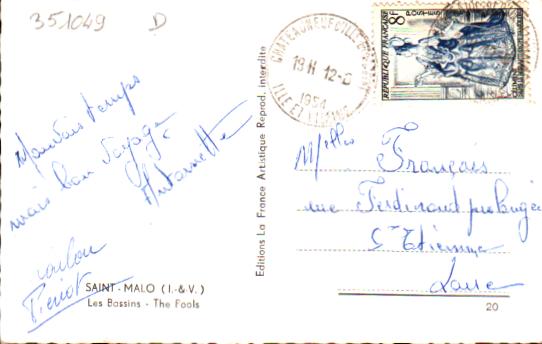 351049 D
Mauvais temps
mais bon voyage
Antoinette
Pierrot
SAINT-MALO (I.-&-V.)
Les Bassins - The Fools
Editions La France Artistique Reprod. interdite
CHATEAUNEUF
19H 12-8
1954
ILLE ET VILAINE
8F
POSTES
REPUBLIQUE FRANÇAISE
Melles François
rue Ferdinand prolongée
St Etienne
Loire
20